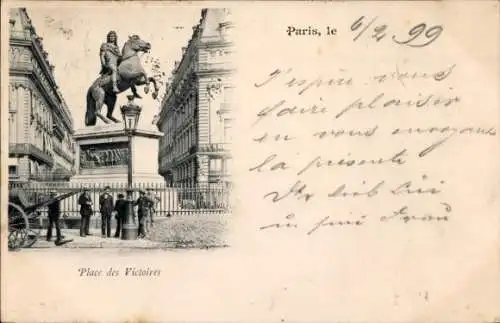 Paris, le 6/2 99
J'espère vous
faire plaisir
en vous envoyant
la présente
Place des Victoires